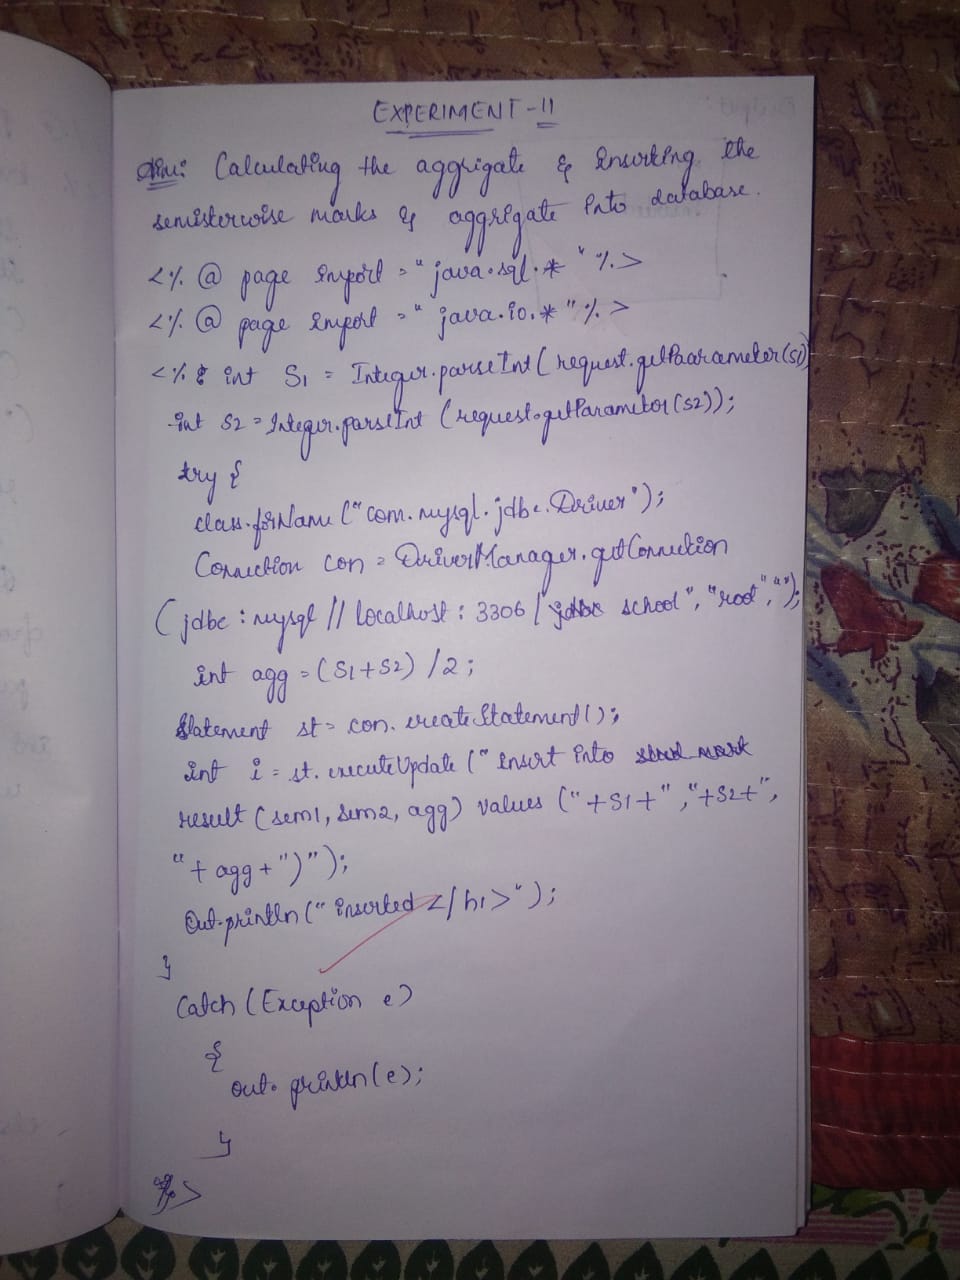 EXPERIMENT - 11
Aim: Calculating the aggrigate & Insurting the
semisterwise marks & aggrigate into database.
<% @ page import = "java.sql.*" %>
<% @ page import = "java.io.*" %>
<% int S1 = Integer.parseInt(request.getPaarameter(s1)
int S2 = Integer.parseInt (request.getParameter(s2));
try {
class.forName ("com.mysql.jdbc.Driver");
Connection con = DriverManager.getConnection
(jdbc : mysql // localhost : 3306 / jdbc school", "root", "");
int agg = (S1+S2) /2;
Statement st = con. createStatement();
int i = st. executeUpdate (" insert into stud mark
result (sem1, sem2, agg) values ("+S1+","+S2+",
"+agg+")");
Out.println (" inserted </h1>");
}
Catch (Exception e)
{
out. println(e);
}
%>